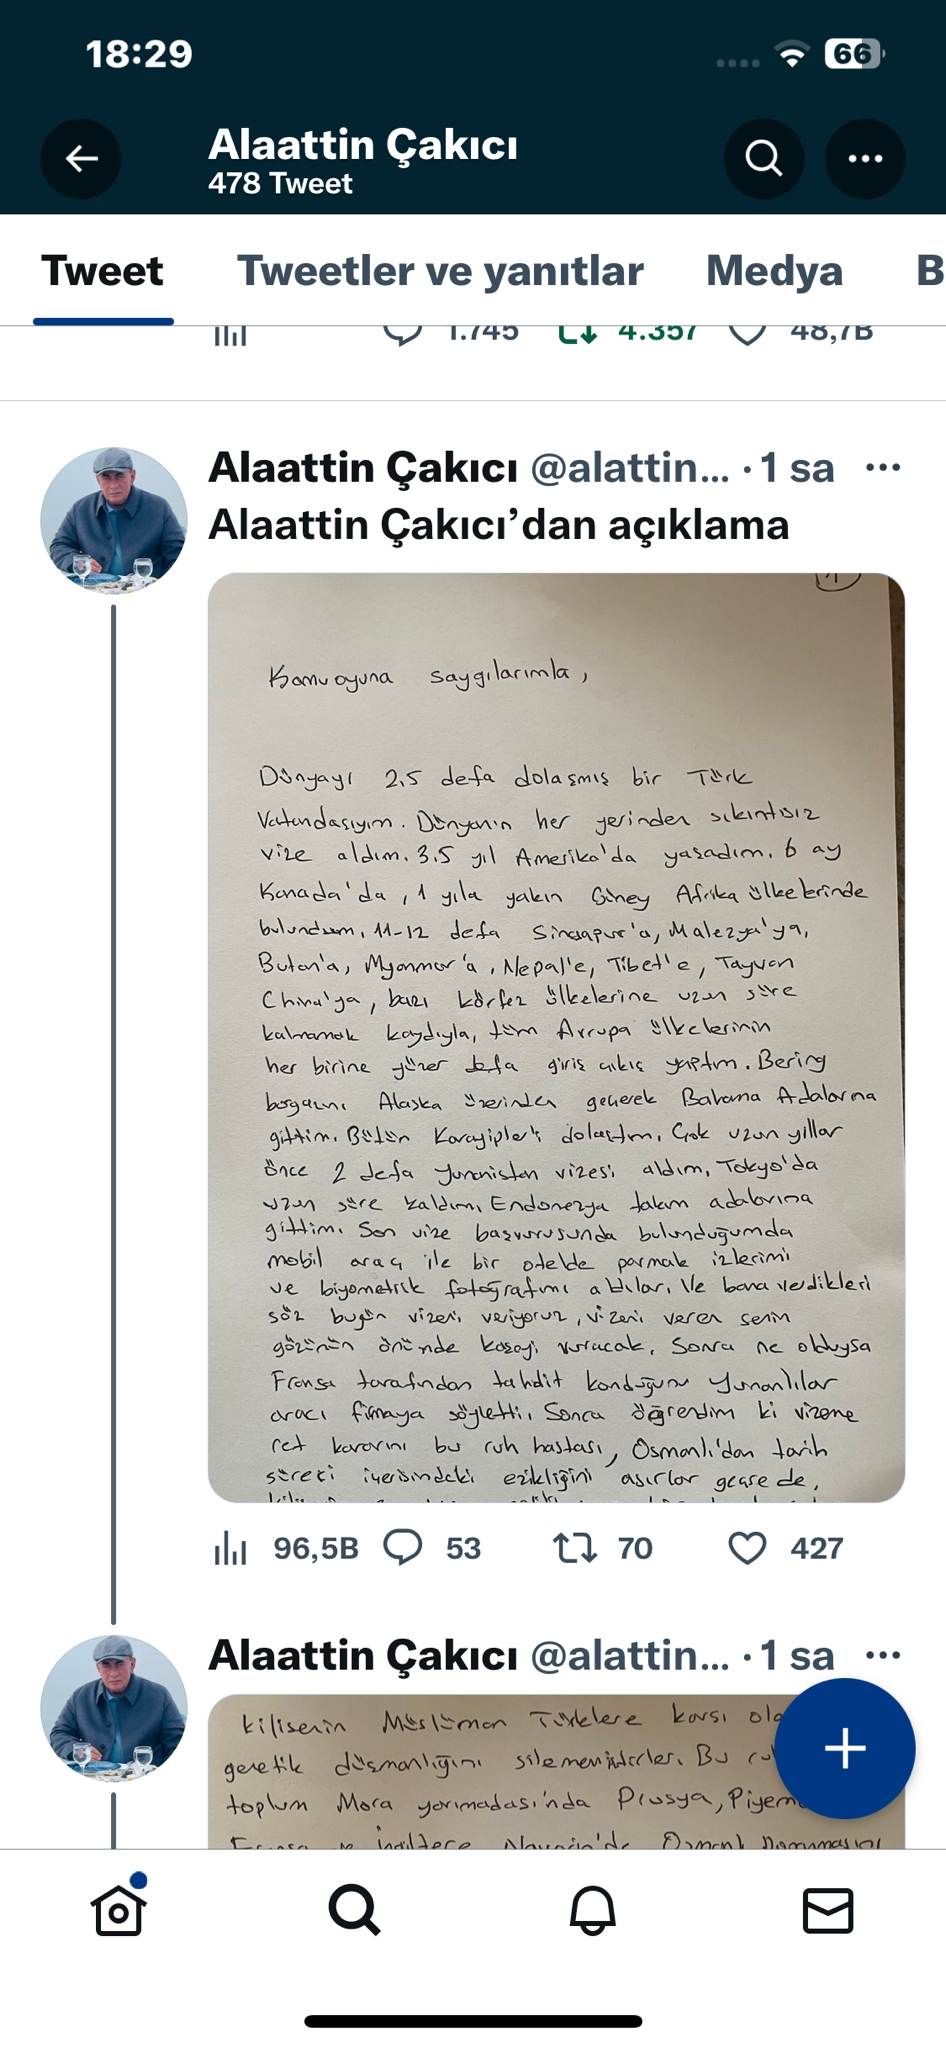 18:29
66
Alaattin Çakıcı
478 Tweet
Tweet Tweetler ve yanıtlar Medya B
1.745 4.357 48,7B
Alaattin Çakıcı @alattin... · 1 sa
Alaattin Çakıcı’dan açıklama
Kamuoyuna saygılarımla,
Dünyayı 2,5 defa dolaşmış bir Türk
Vatandaşıyım. Dünyanın her yerinden sıkıntısız
vize aldım. 3,5 yıl Amerika'da yaşadım. 6 ay
Kanada'da, 1 yıla yakın Güney Afrika ülkelerinde
bulundum, 11-12 defa Singapur'a, Malezya'ya,
Butan'a, Myanmar'a, Nepal'e, Tibet'e, Tayvan
China'ya, bazı körfez ülkelerine uzun süre
kalmamak kaydıyla, tüm Avrupa ülkelerinin
her birine yüzer defa giriş çıkış yaptım. Bering
boğazını Alaska üzerinden geçerek Bahama Adalarına
gittim. Bütün Karayipler'i dolaştım, Çok uzun yıllar
önce 2 defa Yunanistan vizesi aldım, Tokyo'da
uzun süre kaldım, Endonezya takım adalarına
gittim. Son vize başvurusunda bulunduğumda
mobil araç ile bir otelde parmak izlerimi
ve biyometrik fotoğrafımı aldılar. Ve bana verdikleri
söz bugün vizeni veriyoruz, vizeni veren senin
gözünün önünde kaşeyi vuracak. Sonra ne olduysa
Fransa tarafından tahdit konduğunu Yunanlılar
aracı firmaya söyletti. Sonra öğrendim ki vizeme
ret kararını bu ruh hastası, Osmanlı'dan tarih
süreci içerisindeki ezikliğini asırlar geçse de,
96,5B 53 70 427
Alaattin Çakıcı @alattin... · 1 sa
kilisenin Müslüman Türklere karşı
genetik düşmanlığını silememişlerdir. Bu
toplum Mora yarımadası'nda Prusya,